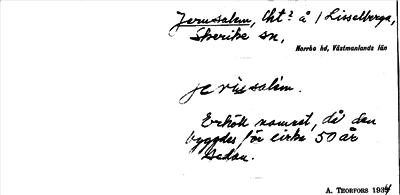 Jerusalem, lht? å / Lisselberga,
Skerike sn,
Norrbo hd, Västmanlands län
jerusalem.
Erhöll namnet, då den
byggdes för cirka 50 år
sedan.
A. THORFORS 1934